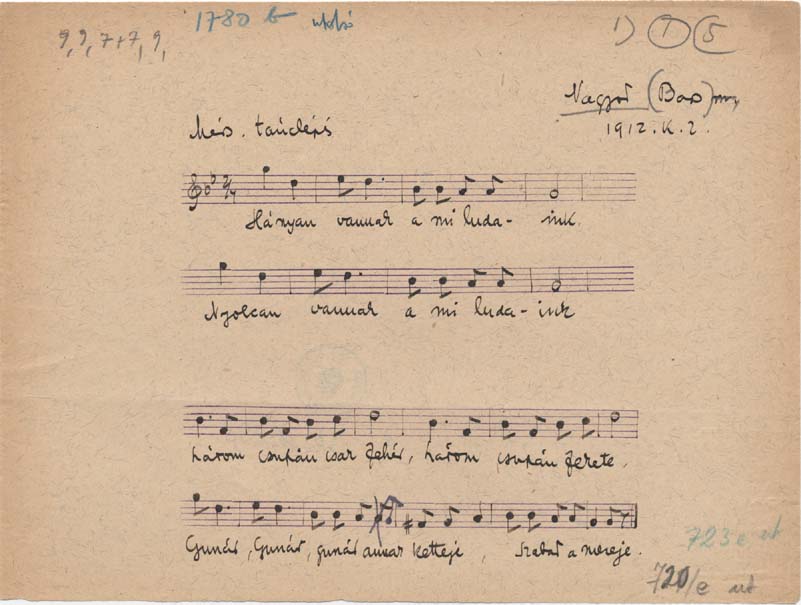 9, 9, 7+7, 9,
1780 b
1) 7 5
(Bars)
1912. K. 2.
Hányan vannak a mi luda- ink.
Nyolcan vannak a mi luda- ink
három csupán csak fehér, három csupán fekete,
Gunár, Gunár, gunár annak ketteje, szabad a mereje.
723e
720/e